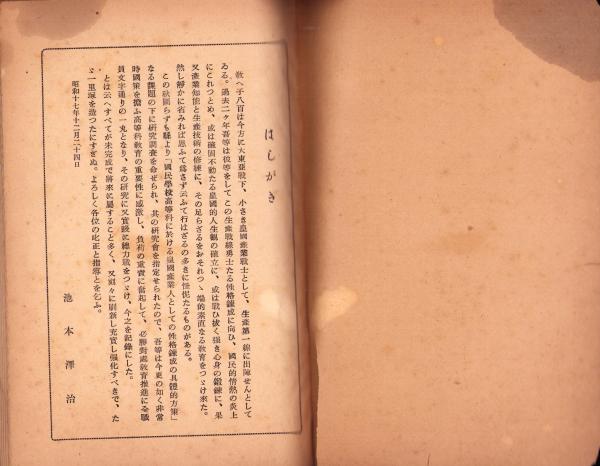 はしがき
教へ子八百は今方に大東亜戰下、小さき皇國產業戰士として、生產第一線に出陣せんとして
ゐる。過去二ケ年吾等は彼等をしてこの生產戰線勇士たる性格錬成に向ひ、國民的情熱の炎上
にこれつとめ、或は確固不動たる皇國的人生觀の確立に、或は戰ひ拔く强き心身の鍛錬に、果
又產業知能と生產技術の修練に、その足らざるをおそれつゝ端的素直なる敎育をつゞけ來た。
然し靜かに省みれば思ふて爲さず云ふて行はざるの多きに怪怩たるものがある。
この秋圖らずも縣より「國民學校高等科に於ける皇國產業人としての性格錬成の具體的方策」
なる課題の下に硏究調査を命ぜられ、其の硏究會を指定せられたので、吾等は今更の如く非常
時國策を擔ふ高等科敎育の重要性に感激し、負荷の重責に奮起して、必勝對處敎育推進に全職
員文字通りの一丸となり、その硏究に又實踐に總力戰をつゞけ、今之を記錄にした。
とは云へすべてが未完成で將來に屬すること多く、又刻々に刷新し充實し强化すべきで、た
ゞ一里塚を造つたにすぎぬ。よろしく各位の叱正と指導とを乞ふ。
昭和十七年十二月二十四日
池本澤治